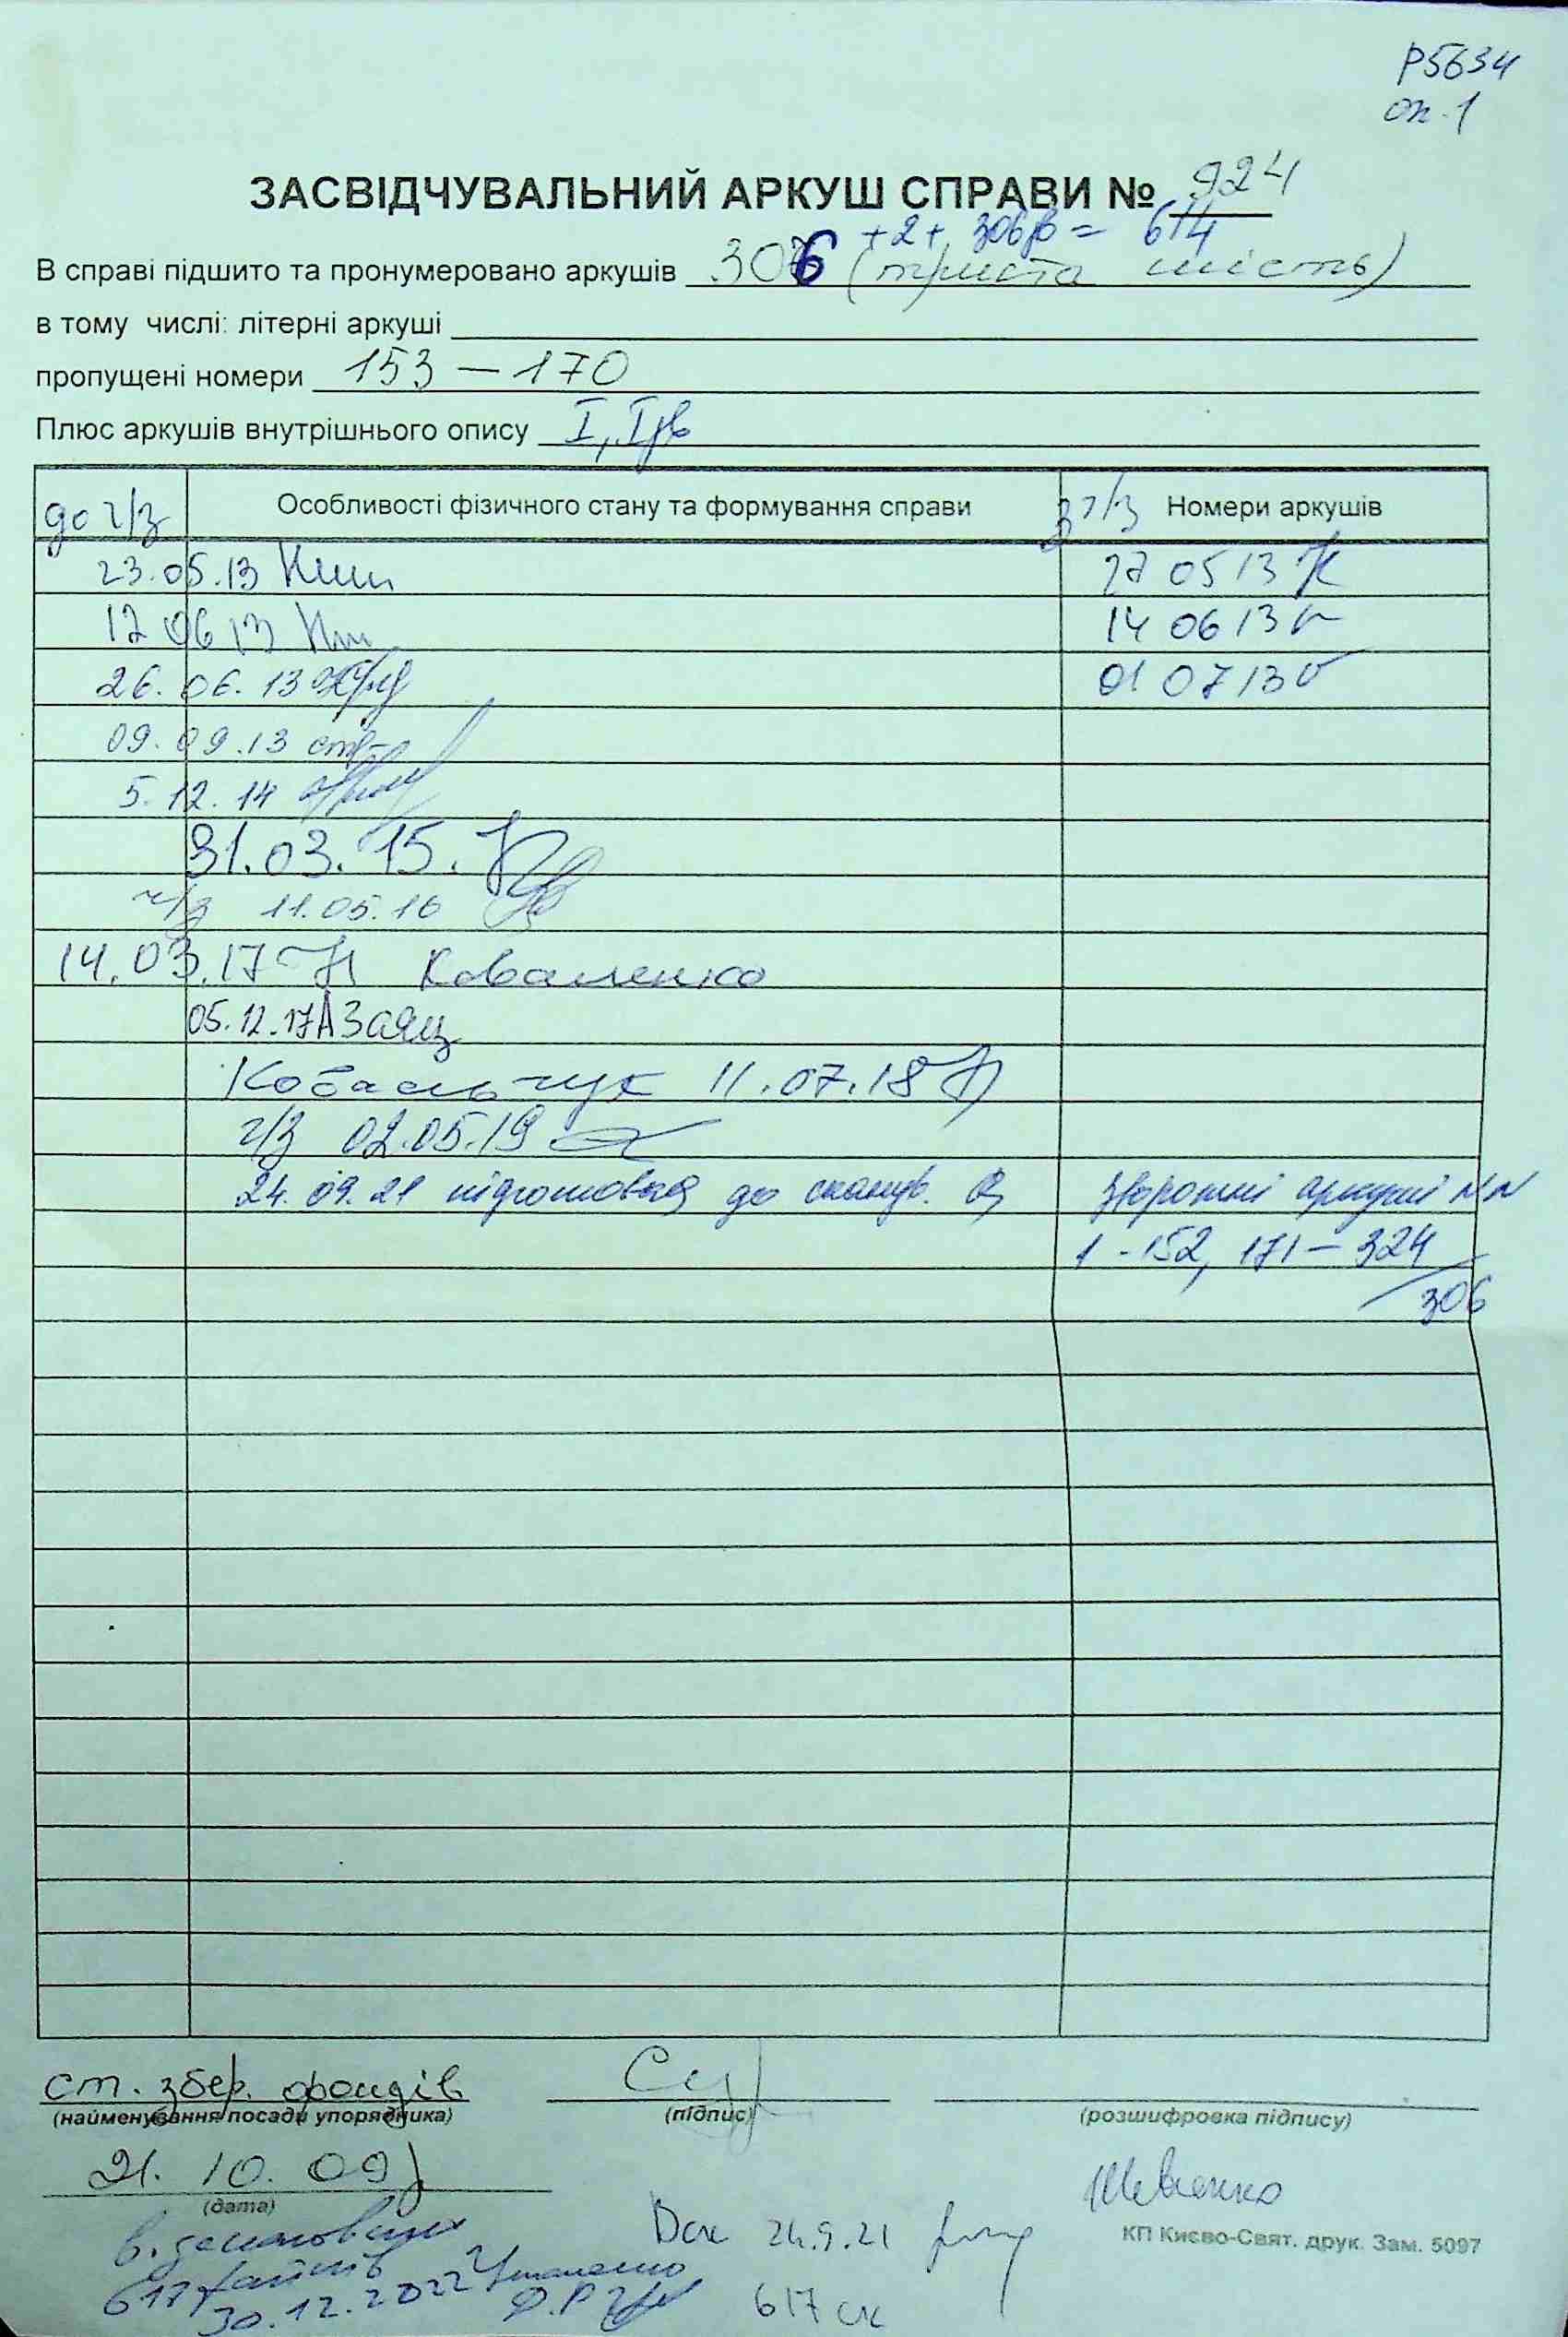 Р5634
оп. 1
ЗАСВІДЧУВАЛЬНИЙ АРКУШ СПРАВИ № 924
+2+ 306зв = 614
В справі підшито та пронумеровано аркушів 306 (триста шість)
в тому числі: літерні аркуші
пропущені номери 153 – 170
Плюс аркушів внутрішнього опису I, Iзв
до ч/з Особливості фізичного стану та формування справи з ч/з Номери аркушів
23.05.13 27 05 13
12 06 13 14 06 13
26. 06. 13 01 07 13
09. 09. 13
5. 12. 14
31. 03. 15.
ч/з 11.05.16
14.03.17 Коваленко
05.12.17 А Заяц
Ковальчук 11.07.18
ч/з 02.05.19
24. 09. 21 підготовка до сканув. зворотні аркуші NN
1 - 152, 171 – 324
306
ст. збер. фондів
(найменування посади упорядника) (підпис) (розшифровка підпису)
21. 10. 09
(дата)
Шевченко
КП Києво-Свят. друк. Зам. 5097
24.9.21
617 файлів
30.12.2022
617 ск